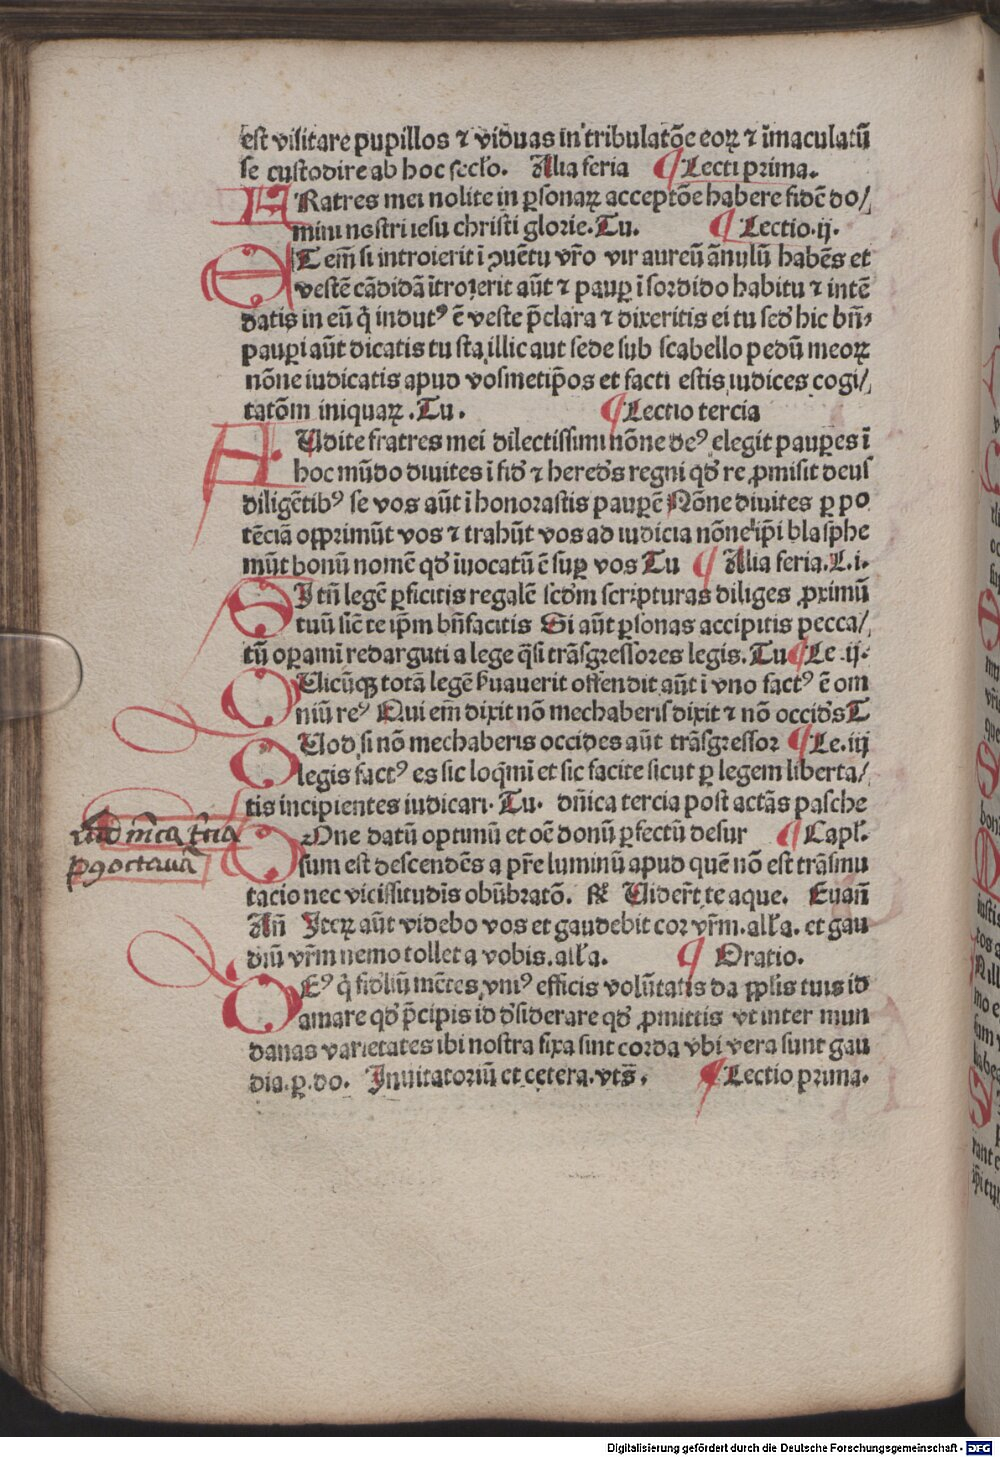 est visitare pupillos ⁊ viduas in tribulatōe eoꝝ ⁊ īmaculatū
se custodire ab hoc secło. Alia feria ¶ Lecti prima.
FRatres mei nolite in ꝑsonaꝝ acceptōe habere fidē do/
mini nostri iesu christi glorie. Tu. ¶ Lectio .ij.
ETem̄ si introierit ī ꝯuētu vr̄o vir aureū ānulū habēs et
vestē cādidā ītroierit aūt ⁊ pauꝑ ī sordido habitu ⁊ intē
datis in eū q̇ indutꝰ ē veste p̄clara ⁊ dixeritis ei tu sed̕ hic bn̄
pauꝑi aūt dicatis tu sta illic aut sede sub scabello pedū meoꝝ
nōne iudicatis apud vosmetip̄os et facti estis iudices cogi/
tatōm iniquaꝝ. Tu. ¶ Lectio tercia
AUdite fratres mei dilectissimi nōne deꝰ elegit pauꝑes ī
hoc mūdo diuites ī fid̕ ⁊ hered̕s regni qd̕ re ꝓmisit deus
diligētibꝰ se vos aūt ī honorastis pauꝑē Nōne diuites ꝑ po
tēciā opprimūt vos ⁊ trahūt vos ad iudicia nōne ip̄i blasphe
mūt bonū nomē qd̕ īuocatū ē suꝑ vos Tu ¶ Alia feria. L. i.
SI tn̄ legē ꝑficitis regalē scd̕m scripturas diliges ꝓximū
tuū sic̄ te ip̄m bn̄facitis Si aūt ꝑsonas accipitis pecca/
tū oꝑami redarguti a lege q̄si trāsgressores legis. Tu ¶ Le .ij.
QUicūqꝫ totā legē ẜuauerit offendit aūt ī vno factꝰ ē om
niū reꝰ Qui em̄ dixit nō mechaberis dixit ⁊ nō occid̕s T
QUod si nō mechaberis occides aūt trāsgressor ¶ Le. iij
legis factꝰ es sic loq̄mī et sic facite sicut ꝑ legem liberta/
tis incipientes iudicari. Tu. dn̄ica tercia post actās pasche
OOne datū optimū et oē donū ꝑfectū desur ¶ Capł.
sum est descendēs a pr̄e luminū apud quē nō est trāsmu
tacio nec vicissitudīs obūbratō. ℟ Uider̄t te aque. Euan̄
An̄ Iteꝝ aūt videbo vos et gaudebit cor vr̄m. ałła. et gau
diū vr̄m nemo tollet a vobis. ałła. ¶ Oratio.
DEꝰ q̇ fid̕liū mētes vniꝰ efficis volūtatis da pplis tuis id
amare qd̕ p̄cipis id d̕siderare qd̕ ꝓmittis vt inter mun
danas varietates ibi nostra fixa sint corda vbi vera sunt gau
dia. ꝑ. do. Inuitatoriū et cetera. vts̄. ¶ Lectio prima.
Digitalisierung gefördert durch die Deutsche Forschungsgemeinschaft - DFG